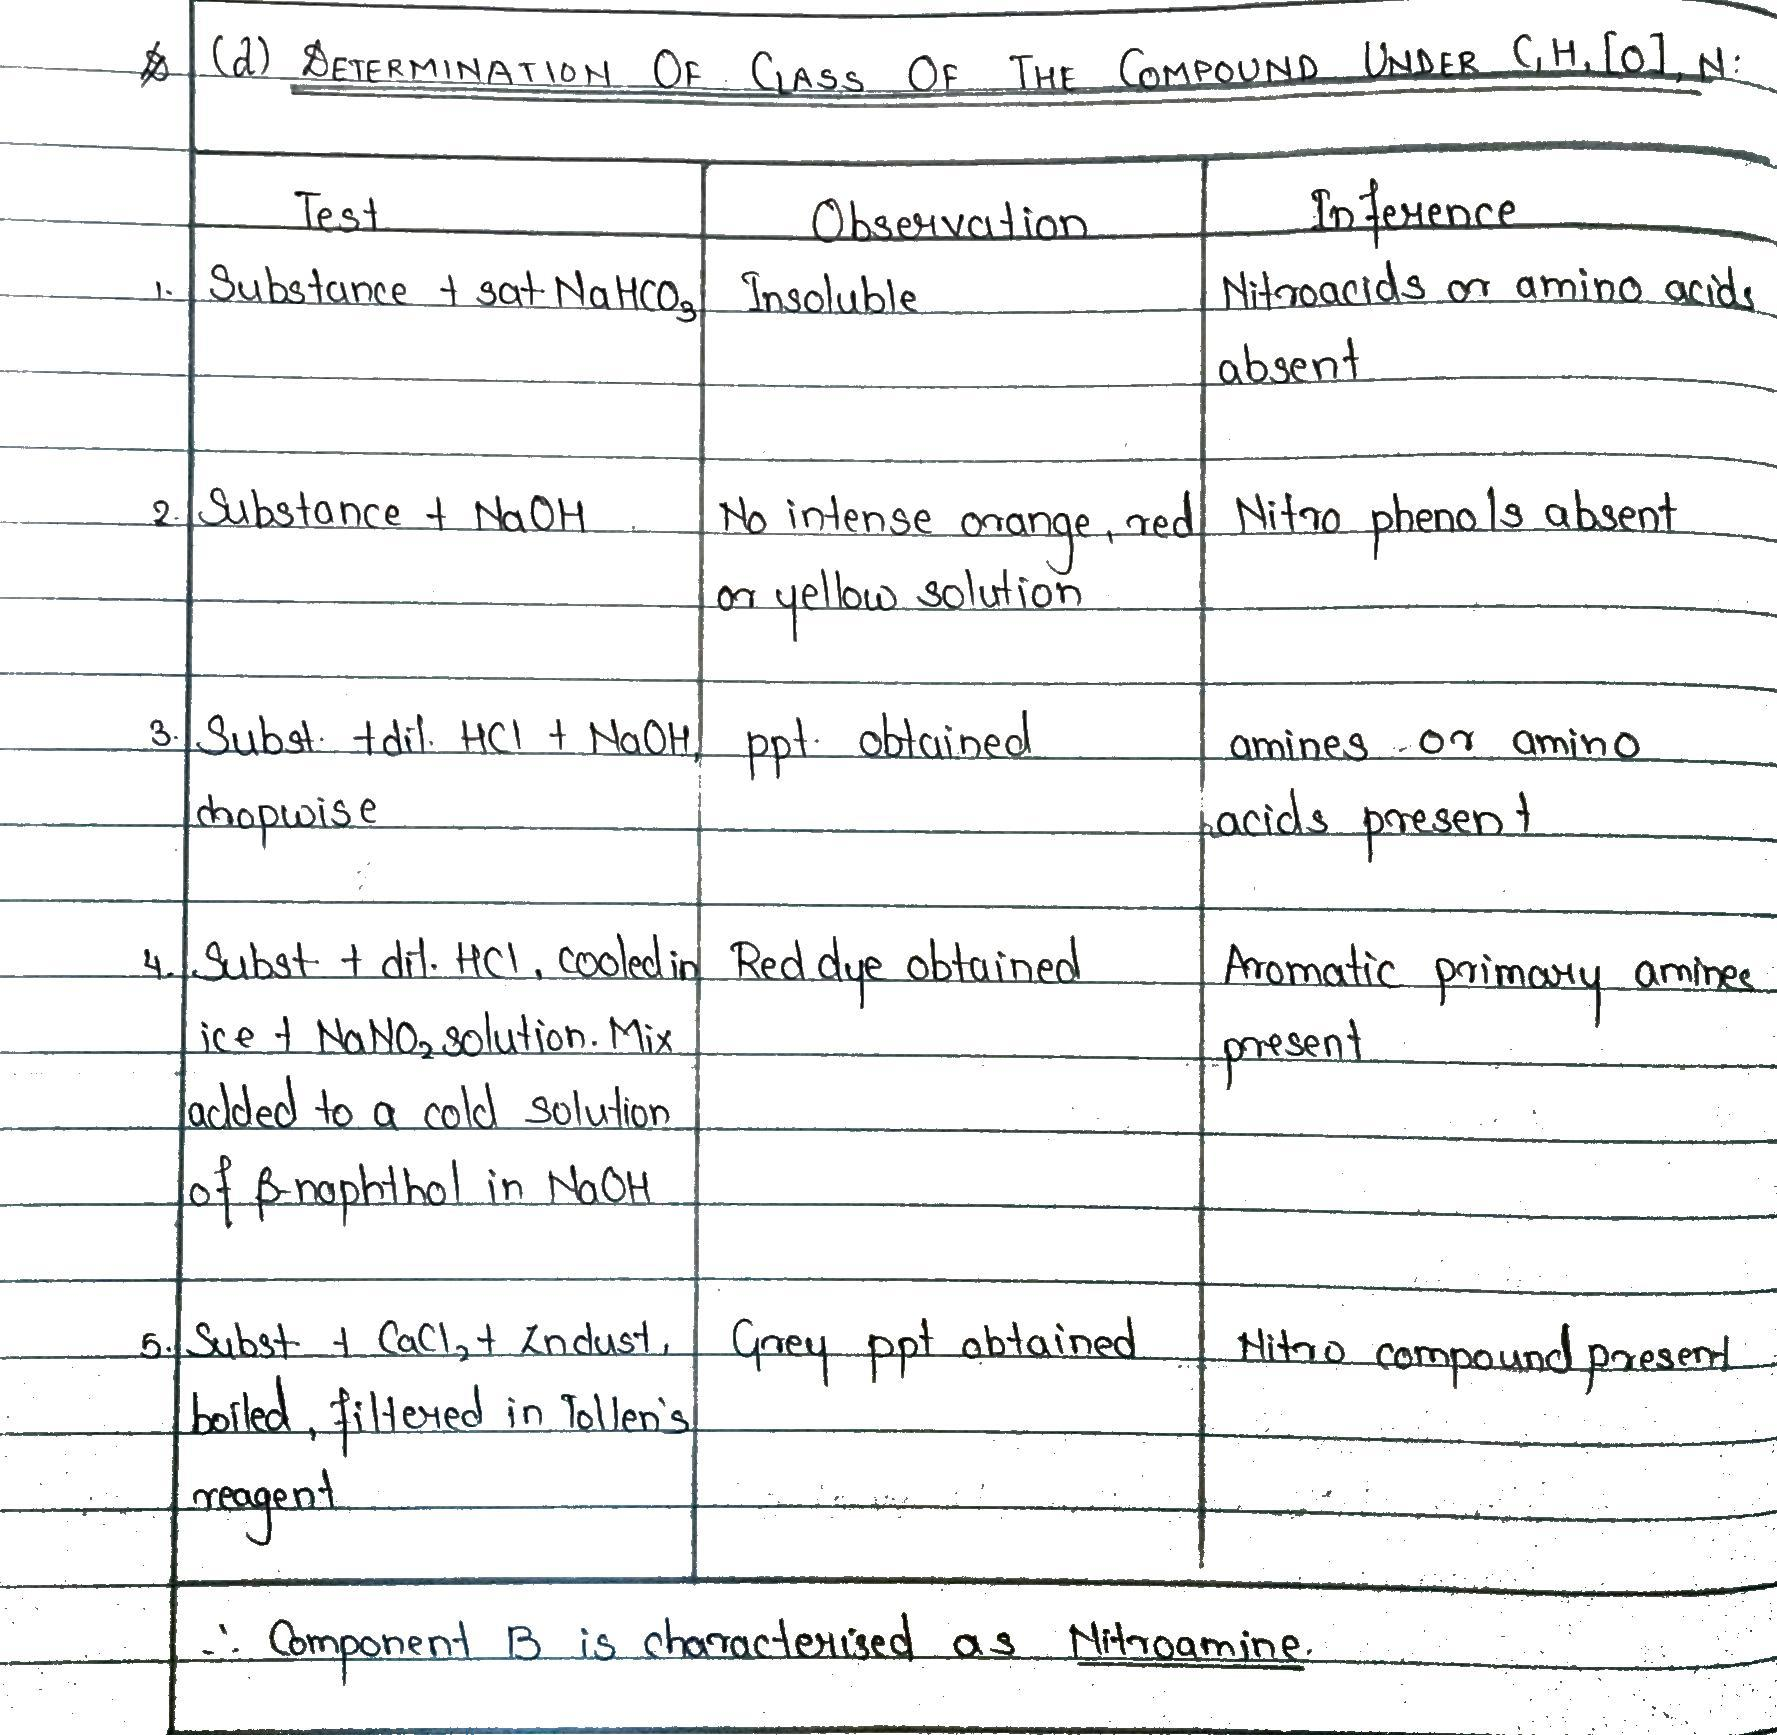 (d) DETERMINATION OF CLASS OF THE COMPOUND UNDER C,H,[O],N:
Test
Observation
Inference
1. Substance + sat NaHCO3
Insoluble
Nitroacids or amino acids
absent
2. Substance + NaOH
No intense orange, red
or yellow solution
Nitro phenols absent
3. Subst. + dil. HCl + NaOH,
dropwise
ppt. obtained
amines or amino
acids present
4. Subst + dil. HCl, cooled in
ice + NaNO2 solution. Mix
added to a cold solution
of β-naphthol in NaOH
Red dye obtained
Aromatic primary amines
present
5. Subst + CaCl2 + Zn dust,
boiled, filtered in Tollen's
reagent
Grey ppt obtained
Nitro compound present
∴ Component B is characterised as Nitroamine.